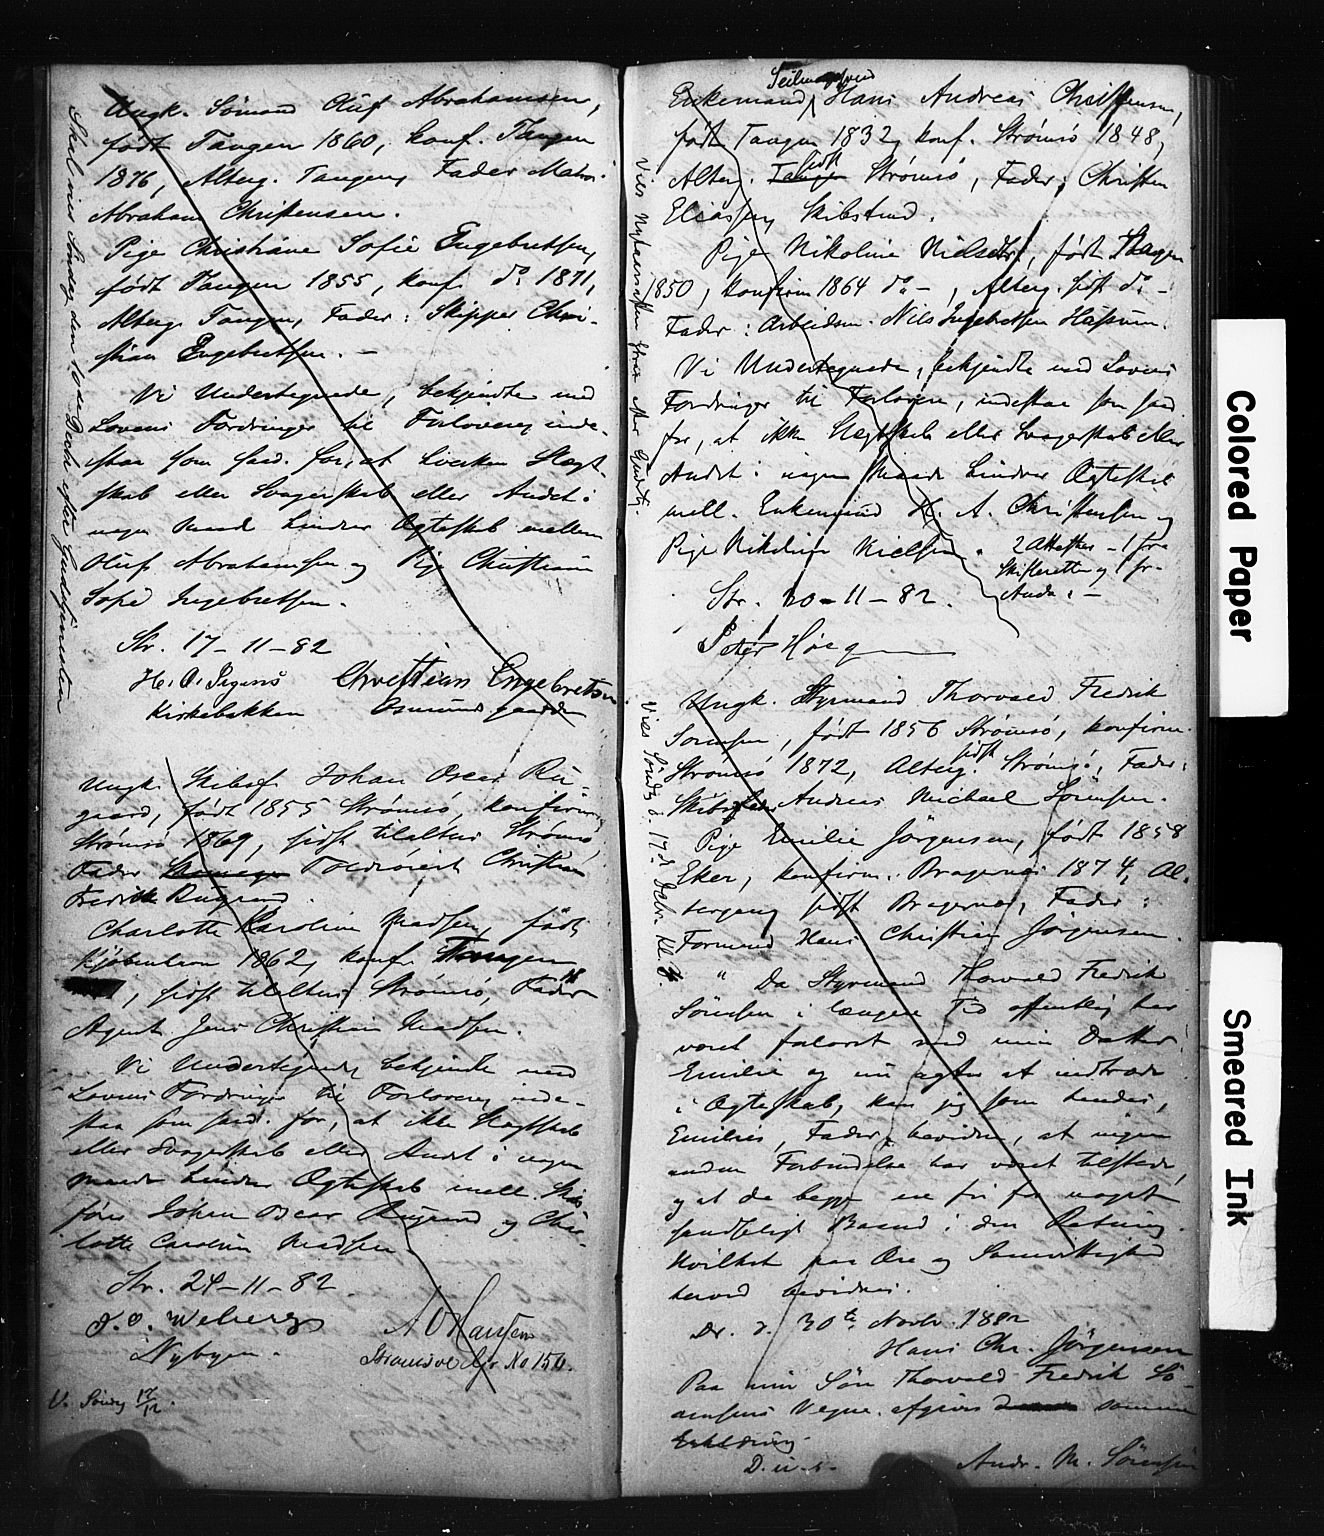 Ungk. Sømand Oluf Abrahamsen,
født Tangen 1860, konf. Tangen
1876, Alterg. Tangen, Fader Matr.
Abraham Christensen.
Pige Christiane Sofie Engebretsen,
født Tangen 1855, konf. do 1871,
Alterg. Tangen, Fader: Skipper Chri-
stian Engebretsen. —
Vi Undertegnede, bekjendte med
Lovens Fordringer til Forlovere, inde-
staa som saad. for, at hverken Slægt-
skab eller Svogerskab eller Andet i
nogen Maade hindrer Ægteskab mellem
Oluf Abrahamsen og Pige Christiane
Sofie Engebretsen.
Str. 17-11-82
Christian Engebretsen
Kirkebakken
Skal vies Søndag den 10de Decbr efter Gudstjenesten
Ungk. Skibsf. Johan Oscar Ru-
gaard, født 1855 Strømsø, konfirm.
Strømsø 1869, sidst tilalters Strømsø,
Fader Christian
Fredrik Rugaard.
Charlotte Karoline Madsen, født
Kjøbenhavn 1862, konf. Tangen
78, sidst tilalters Strømsø, Fader
Agent Jens Christian Madsen.
Vi Undertegnede, bekjendte med
Lovens Fordringer til Forlovere, inde-
staa som saad. for, at ikke Slægtskab
eller Svogerskab eller Andet i nogen
Maade hindrer Ægteskab mell. Skibs-
fører Johan Oscar Rugaard og Char-
lotte Caroline Madsen.
Str. 24-11-82.
J. O. Weberg
Nybyen.
A O Hansen
Strømsøe No 156.
V. Søndg 17/12.
Enkemand, Hans Andreas Christensen,
født Tangen 1832, konf. Strømsø 1848,
Alterg. sidst Strømsø, Fader: Christen
Eliassen, Skibstmd.
Pige Nikoline Nielsen, født Tangen
1850, konfirm 1864 do —, Alterg. sidst do —
Fader: Arbeidsm. Nils Ingebretsen
Vi Undertegnede, bekjendte med Lovens
Fordringer til Forlovere, indestaa som saad.
for, at ikke Slægtskab eller Svogerskab eller
Andet i nogen Maade hindrer Ægteskab
mell. Enkemand H. A. Christensen og
Pige Nikoline Nielsen.
2 Attester — 1 fra
Skifteretten og 1 fr.
Str. 20-11-82.
Peter Høeg
Ungk. Styrmand Thorvald Fredrik
Sørensen, født 1856 Strømsø, konfirm.
Strømsø 1872, Alterg. sidst Strømsø, Fader:
Andreas Michael Sørensen.
Pige Emilie Jörgensen, født 1858
Eker, konfirm. Bragernes 1874, Al-
tergang sidst Bragernes, Fader:
Formand Hans Christian Jörgensen.
Vies Søndg d. 17d Decbr. Kl. 7.
" Da Styrmand Thorvald Fredrik
Sørensen i længere Tid offentlig har
været forlovet med min Datter
Emilie og nu agter at indtræde
i Ægteskab, kan jeg som hendes,
Emilies, Fader, bevidne, at ingen
anden Forbindelse har været tilstede,
og at de begge ere fri for noget
Baand i den Retning.
Hvilket paa Ære og Samvittighed
herved bevidnes.
Dr. d. 30te Novbr 1882
Hans Chr. Jörgensen
Paa min Søn Thorvald Fredrik Sö-
rensens Vegne afgives samme
Erklæring.
D. u. s.
Andr. M. Sörensen
Colored Paper
Smeared Ink